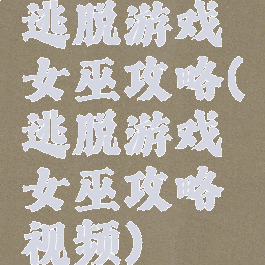 逃脱游戏
女巫攻略(
逃脱游戏
女巫攻略
视频)